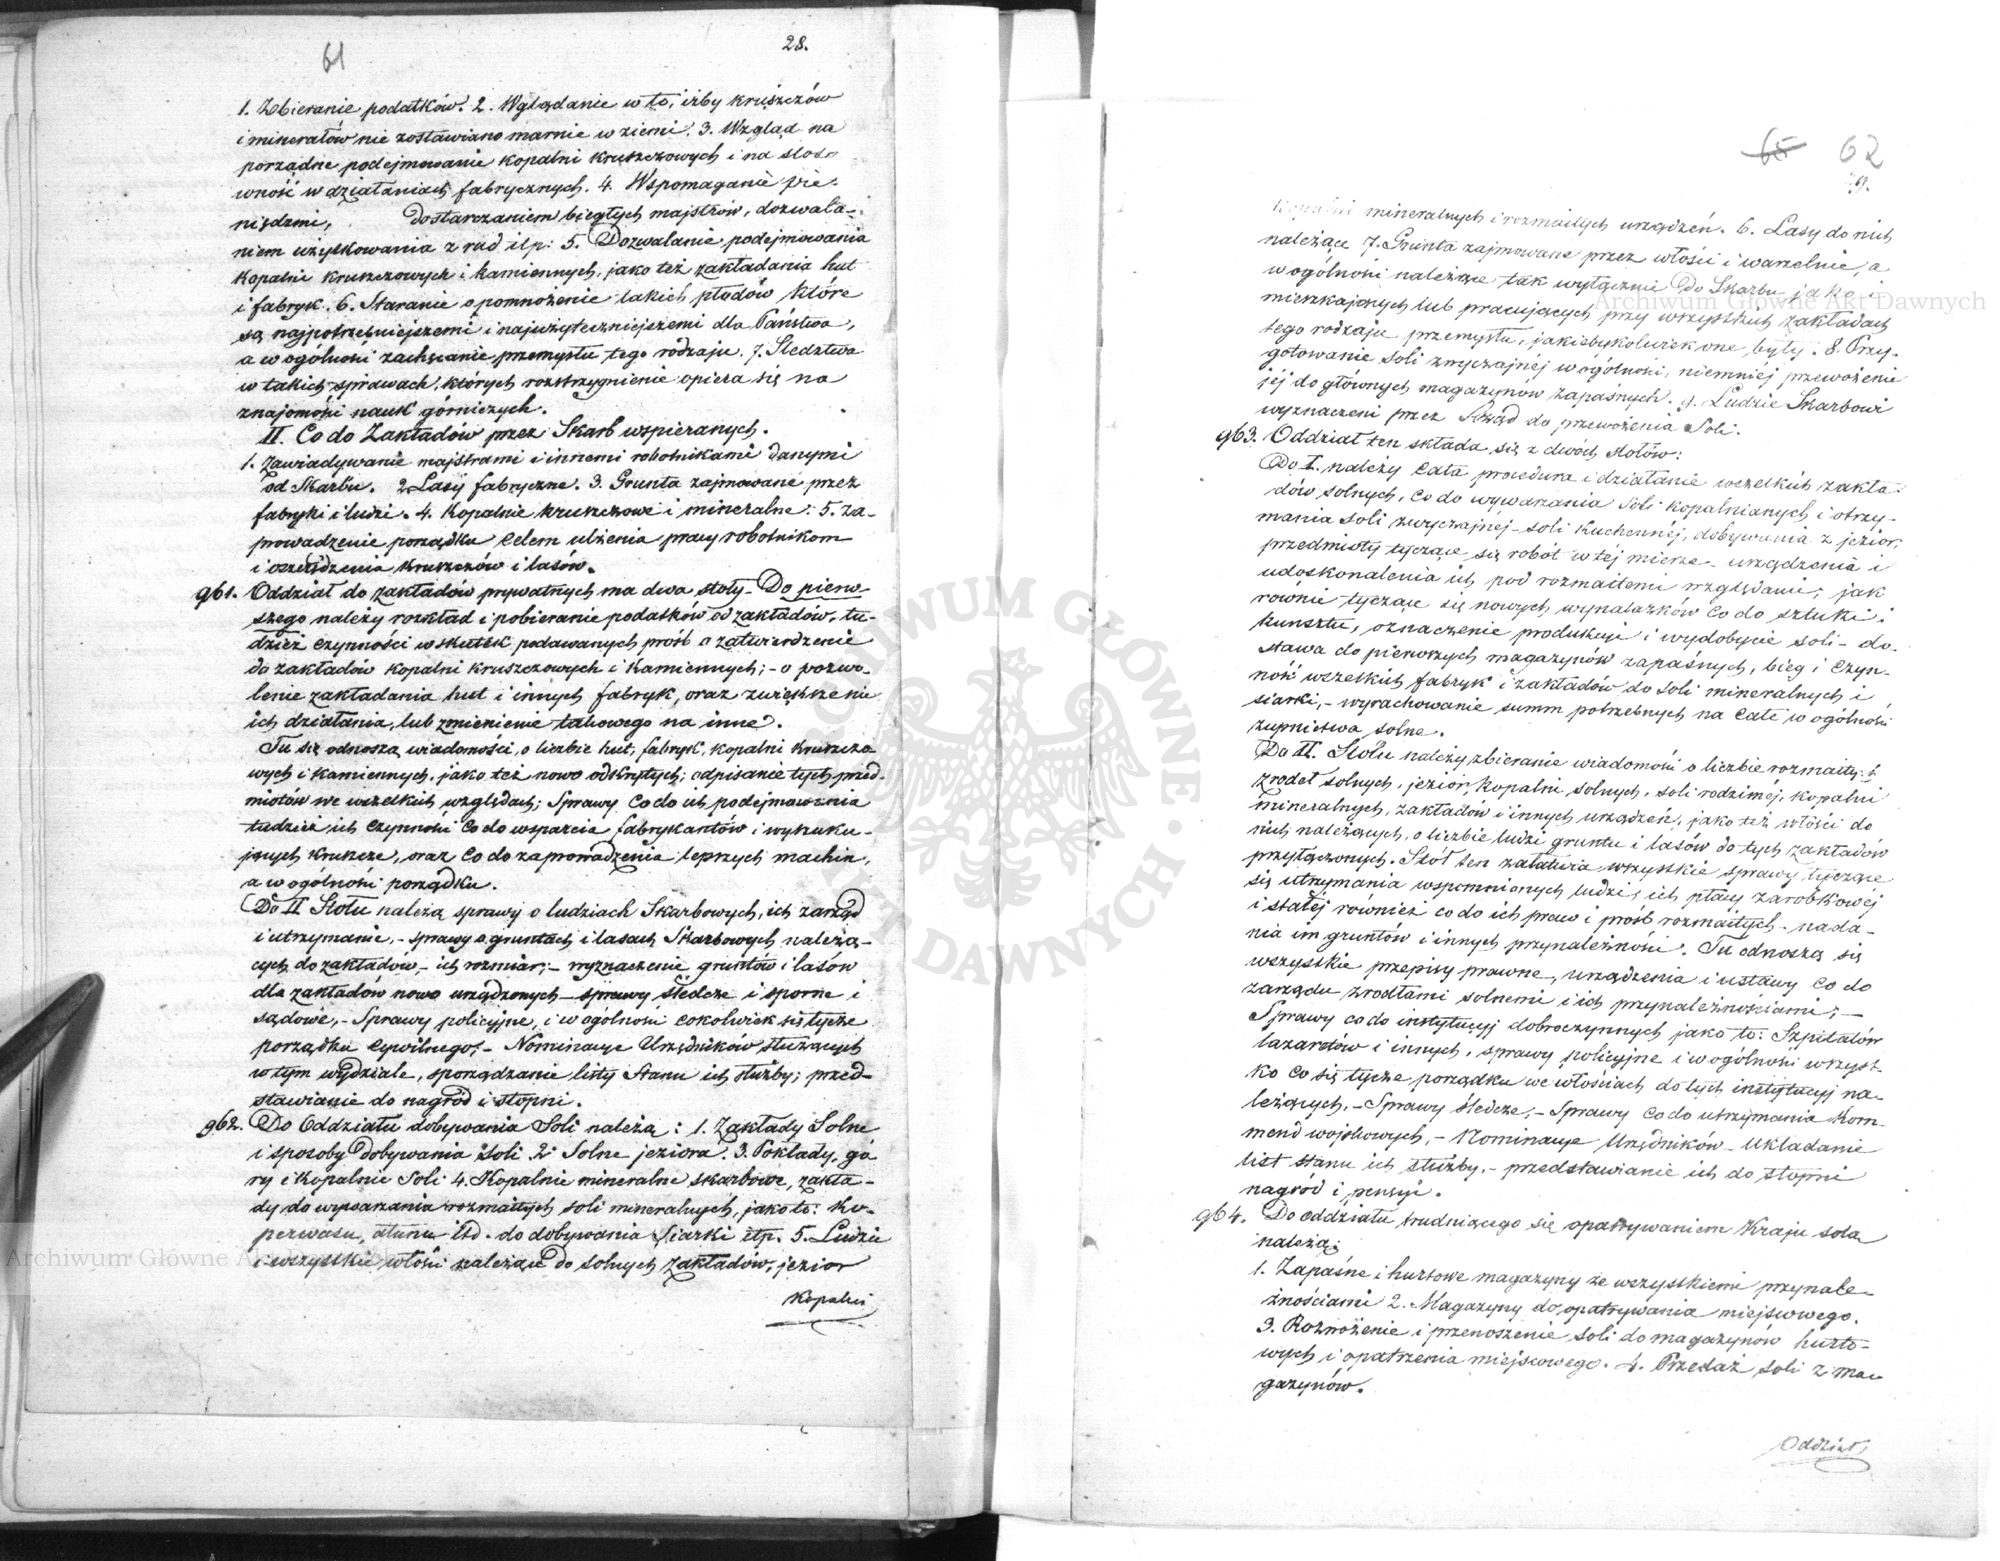 61
28.
1. Zbieranie podatków. 2. Wglądanie w to, iżby kruszczów
i minerałów nie zostawiano marnie w ziemi. 3. Wzgląd na
porządne podejmowanie kopalni kruszczowych i na stoso
wność w działaniach fabrycznych. 4. Wspomaganie pie-
niędzmi, dostarczaniem biegłych majstrów, dozwala-
niem użyskowania z rud itp: 5. Dozwalanie podejmowania
kopalni kruszczowych i kamiennych, jako też zakładania hut
i fabryk. 6. Staranie o pomnożenie takich płodów które
są najpotrzebniejszemi i najużyteczniejszemi dla Państwa,
a w ogólności zachęcanie przemysłu tego rodzaju. 7. Śledztwa
w takich sprawach, których rozstrzygnienie opiera się na
znajomości nauk górniczych.
II. Co do Zakładów przez Skarb wspieranych.
1. Zawiadywanie majstrami i innemi robotnikami danymi
od Skarbu. 2. Lasy fabryczne. 3. Grunta zajmowane przez
fabryki i ludzi. 4. Kopalnie kruszczowe i mineralne. 5. Za-
prowadzenie porządku celem ulżenia pracy robotnikom
i oszczędzenia kruszczów i lasów.
961. Oddział do zakładów prywatnych ma dwa stoły. Do pierw-
szego należy rozkład i pobieranie podatków od zakładów, tu-
dzież czynności w skutek podawanych prośb o zatwierdzenie
do zakładów kopalni kruszczowych i kamiennych; - o pozwo-
lenie zakładania hut i innych fabryk, oraz zwiększenie
ich działania, lub zmienienie takowego na inne.
Tu się odnoszą wiadomości, o liczbie hut, fabryk, kopalni kruszczo-
wych i kamiennych, jako też nowo odkrytych; odpisanie tych przed-
miotów we wszelkich względach; Sprawy co do ich podejmowania
tudzież ich czynności co do wsparcia fabrykantów i wyszuku-
jących kruszcze, oraz co do zaprowadzenia lepszych machin,
a w ogólności porządku.
Do II Stołu należą sprawy o ludziach Skarbowych, ich zarząd
i utrzymanie, - sprawy o gruntach i lasach Skarbowych należą-
cych do zakładów - ich rozmiar; - wyznaczenie gruntów i lasów
dla zakładów nowo urządzonych - sprawy śledcze i sporne i
sądowe, - Sprawy policyjne, i w ogólności cokolwiek się tycze
porządku cywilnego; - Nominacye Urzędników służących
w tym wydziale, sporządzanie listy Stanu ich służby; przed-
stawianie do nagród i stopni.
962. Do Oddziału dobywania Soli należą: 1. Zakłady Solne
i sposoby dobywania Soli 2. Solne jeziora. 3. Pokłady, gó
ry i kopalnie Soli 4. Kopalnie mineralne skarbowe, zakła-
dy do wywarzania rozmaitych soli mineralnych, jako to: ko-
perwasu, ałunu itd. do dobywania Siarki itp. 5. Ludzie
i wszystkie włości należące do solnych zakładów, jezior
Kopalni
65 62
Kopalni mineralnych i rozmaitych urządzeń. 6. Lasy do nich
należące 7. Grunta zajmowane przez włości i warzelnie, a
w ogólności należące tak wyłącznie do Skarbu jako i
mieszkających lub pracujących przy wszystkich zakładach
tego rodzaju przemysłu, jakiebykolwiek one były. 8. Przy-
gotowanie soli zwyczajnej w ogólności, niemniej przewożenie
jéj do głównych magazynów zapaśnych. 9. Ludzie Skarbowi
wyznaczeni przez Rząd do przewożenia Soli.
963. Oddział ten składa się z dwóch stołów:
Do I. należy cała procedura i działanie wszelkich zakła-
dów solnych, co do wywarzania soli kopalnianych i otrzy-
mania soli zwyczajnej - soli kuchennéj, dobywania z jezior,
przedmioty tyczące się robót w téj mierze - urządzenia i
udoskonalenia ich pod rozmaitemi względami, jak
równie tyczące się nowych wynalazków co do sztuki i
kunsztu, oznaczenie produkcyi i wydobycie soli - do-
stawa do pierwszych magazynów zapaśnych, bieg i czyn-
ność wszelkich fabryk i zakładów do soli mineralnych i
siarki, - wyrachowanie summ potrzebnych na całe w ogólności
żupnictwo solne.
Do II. Stołu należy zbieranie wiadomości o liczbie rozmaitych
źrodeł solnych, jezior, kopalni solnych, soli rodzimej, kopalni
mineralnych, zakładów i innych urządzeń, jako też włości do
nich należących, o liczbie ludzi gruntu i lasów do tych zakładów
przyłączonych. Stół ten załatwia wszystkie sprawy tyczące
się utrzymania wspomnionych ludzi, ich płacy zarobkowéj
i stałéj również co do ich praw i prośb rozmaitych - nada-
nia im gruntów i innych przynależności. Tu odnoszą się
wszystkie przepisy prawne, urządzenia i ustawy co do
zarządu źrodłami solnemi i ich przynależnościami; -
Sprawy co do instytucyj dobroczynnych jako to: Szpitalów
lazaretów i innych, sprawy policyjne i w ogólności wszyst-
ko co się tycze porządku we włościach do tych instytucyj na-
leżących, - Sprawy śledcze, - Sprawy co do utrzymania Kom-
mend wojskowych, - Nominacye Urzędników - Układanie
list stanu ich służby, - przedstawianie ich do stopni
nagród i pensyi.
964. Do oddziału, trudniącego się opatrywaniem Kraju solą
należą:
1. Zapaśne i hurtowe magazyny ze wszystkiemi przynale-
żnościami 2. Magazyny do opatrywania miejscowego.
3. Rozwożenie i przenoszenie soli do magazynów hurto-
wych i opatrzenia miejscowego. 4. Przedaż soli z ma-
gazynów.
Oddział
Archiwum Główne Akt Dawnych
Archiwum Główne Akt Dawnych
ARCHIWUM GŁÓWNE AKT DAWNYCH